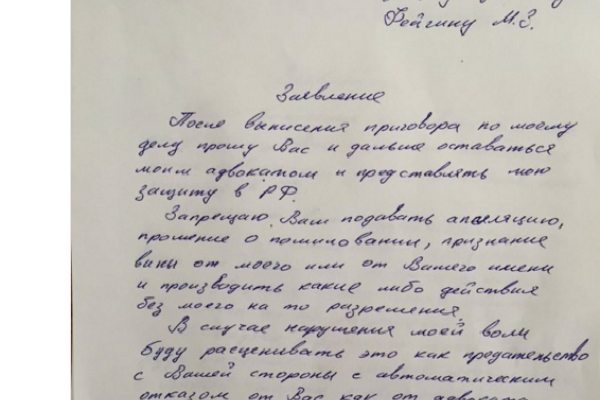 Фейгину М.З.
Заявление
После вынисения приговора по моему
делу прошу Вас и дальше оставаться
моим адвокатом и представлять мою
защиту в РФ.
Запрещаю Вам подавать апеляцию,
прошение о помиловании, признание
вины от моего или от Вашего имени
и производить какие либо действия
без моего на то разрешения.
В случае нарушения моей воли
буду расценивать это как предательство
с Вашей стороны с автоматическим
отказом от Вас как от адвоката